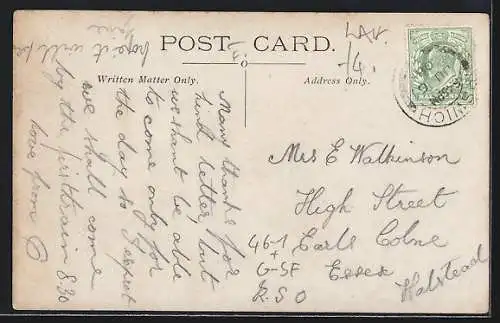 hope it will be
fine
POST CARD.
Written Matter Only.
Address Only.
LAV.
-/4.
Many thanks for
kind letter, but
we shant be able
to come only for
the day so I expect
we shall come
by the first train 8.30
love from C
Mrs E Walkinson
High Street
Earls Colne
Essex
R.S.O
Halstead
46-1
+
G-SF